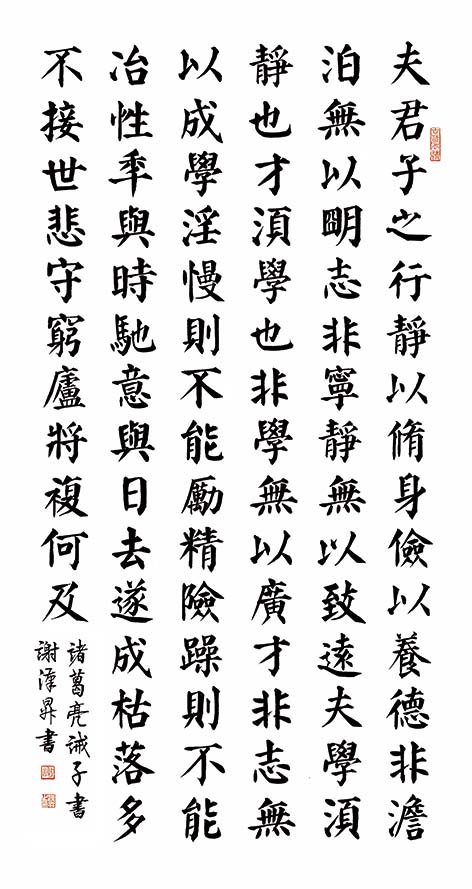 夫君子之行靜以脩身儉以養德非澹
泊無以明志非寧靜無以致遠夫學湏
靜也才湏學也非學無以廣才非志無
以成學淫慢則不能勵精險躁則不能
冶性年與時馳意與日去遂成枯落多
不接世悲守窮廬將複何及
諸葛亮誡子書
謝澤昇書